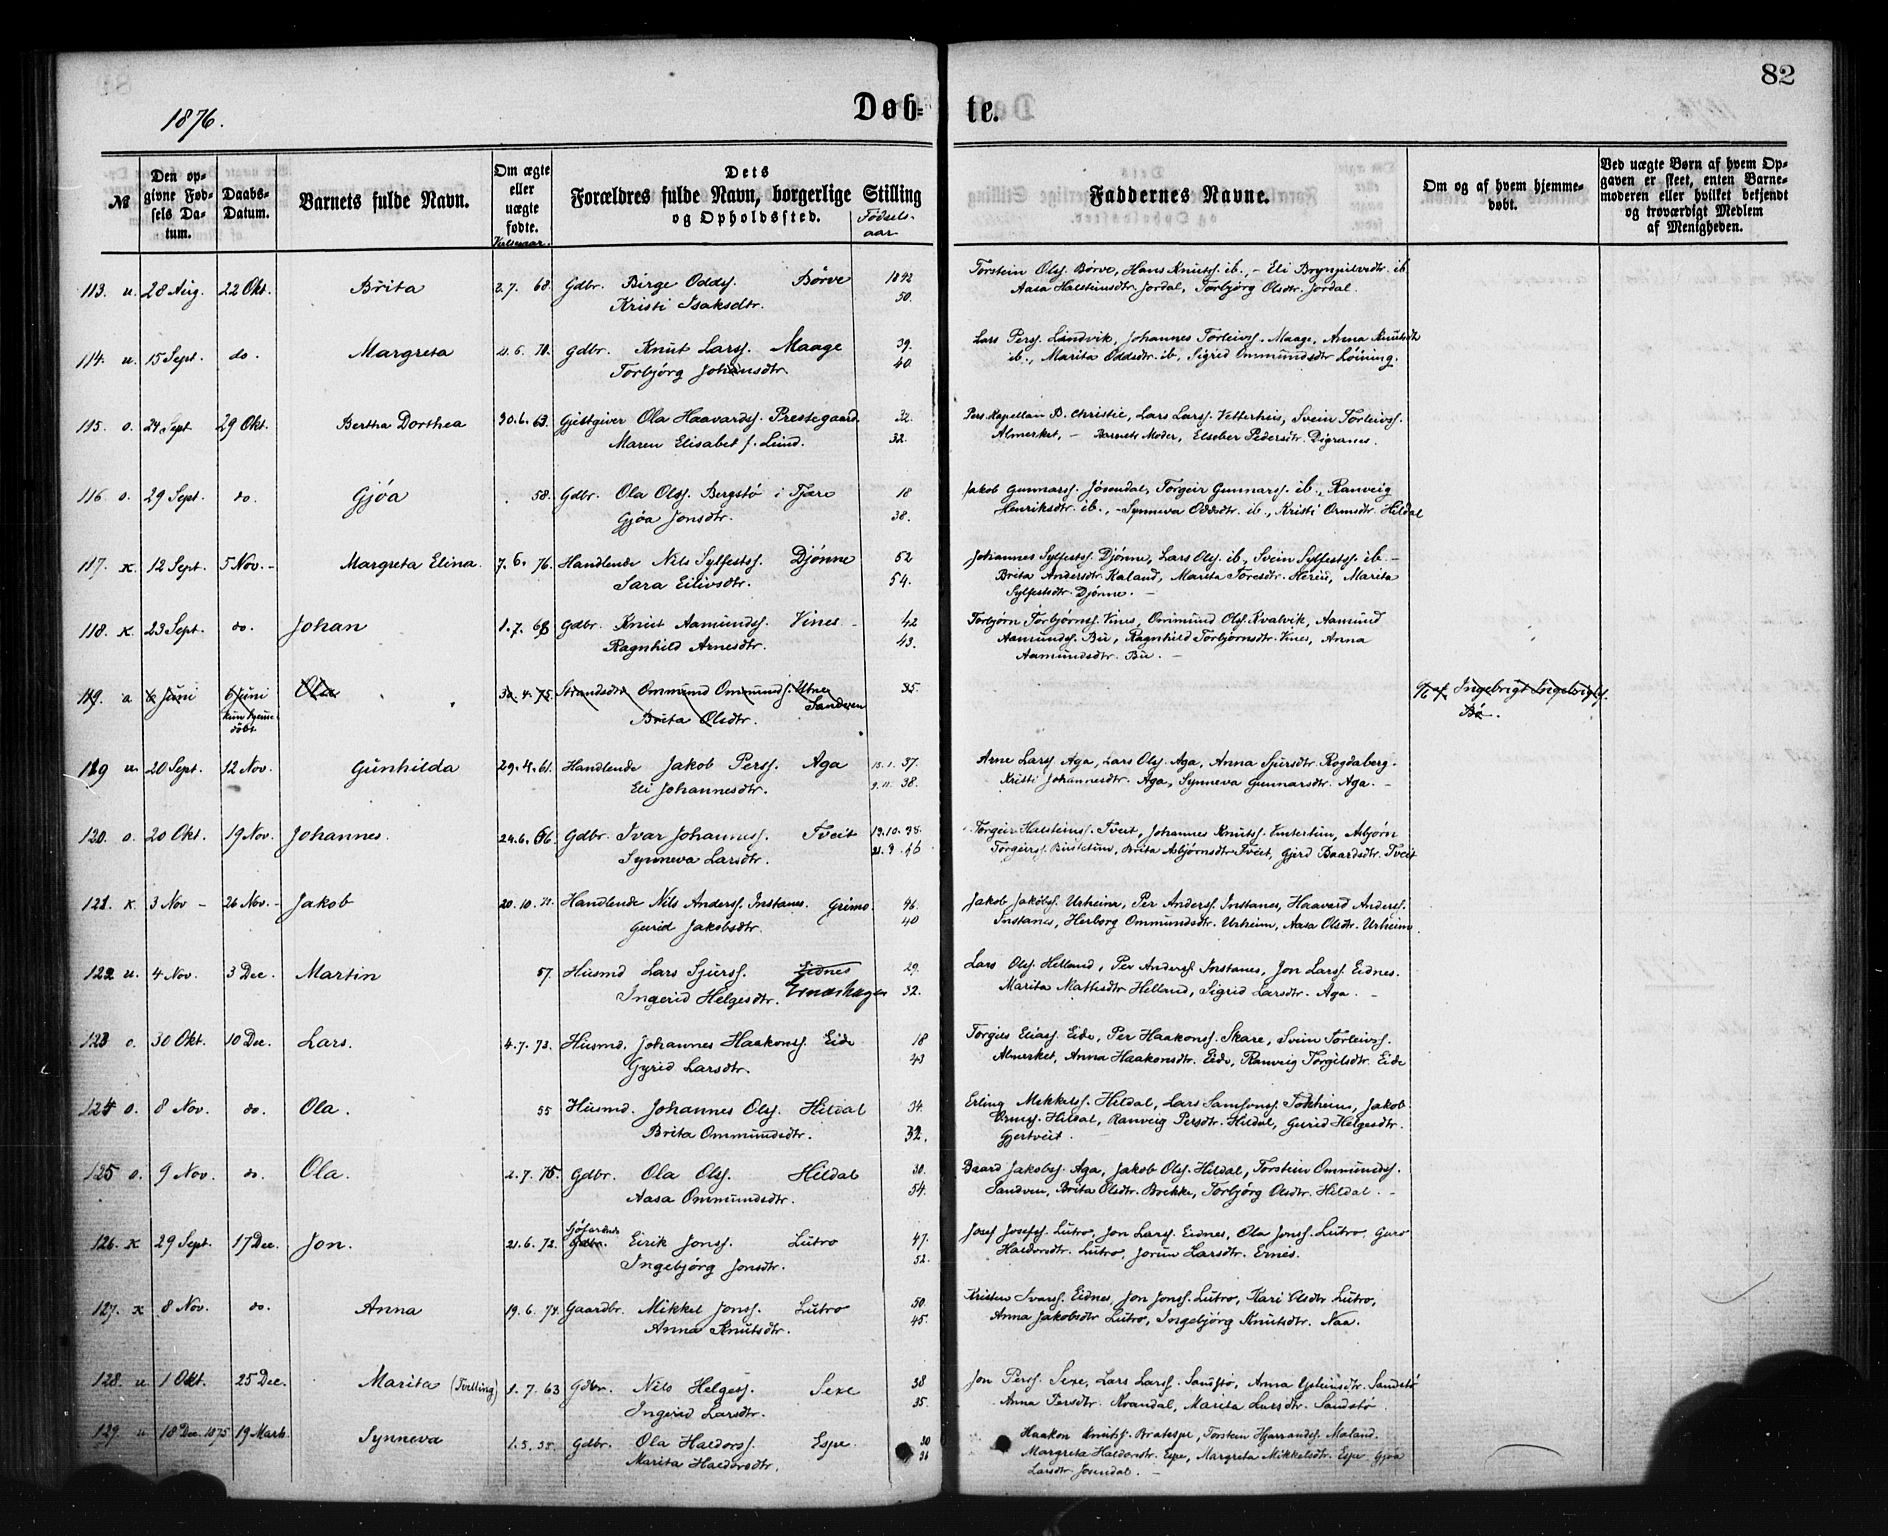 82
1876.
Døbte.
№
Den opgivne Fødsels Datum.
Daabs-Datum.
Barnets fulde Navn.
Om ægte eller uægte fødte.
Dets Forældres fulde Navn, borgerlige Stilling og Opholdssted.
Fødsels-aar
Faddernes Navne.
Om og af hvem hjemmedøbt.
Ved uægte Børn af hvem Opgaven er skeet, enten Barnemoderen eller hvilket betjendt og troværdigt Medlem af Menigheden.
113. u. 28 Aug. 22 Okt. Brita 2.7. 68. Gdbr. Birge Oddss. Børve 1842 Torstein Olss. Børve, Hans Knutss. ib., - Eli Brynjulvsdtr. ib.
Kristi Isaksdtr. 50. Aasa Halsteinsdtr. Jordal, Torbjørg Olsdtr. Jordal.
114. u. 15 Sept. do. Margreta 21.6. 70. Gdbr. Knut Larss. Maage 39. Lars Perss. Lindvik, Johannes Torleivss. Maage, Anna Knutsdtr
Torbjørg Johansdtr. 40. ib., Marita Oddsdtr. ib, Sigrid Ommundsdtr Løining.
115. o. 24 Sept 29 Okt. Bertha Dorthea 30.6. 63. Gjestgiver Ola Haavardss. Prestegaard. 32. Pers. Kapellan B. Christie, Lars Larss. Vetterhus, Svein Torleivss.
Maren Elisabet f. Lund. 32. Almerket, - Barnets Moder, Elseber Pedersdtr. Digranes.
116. o. 29 Sept. do. Gjøa 58. Gdbr. Ola Olss. Bergstø i Tjøre 18 Jakob Gunnarss. Jøsendal, Torgeir Gunnarss. ib., Ranveig
Gjøa Jonsdtr. 38. Henriksdtr. ib., - Synneva Oddsdtr. ib., Kristi Ormsdtr. Hildal
117. k. 12 Sept. 5 Nov. - Margreta Elina. 7.6. 76. Handlende Nils Sylfestss. Djønne 52 Johannes Sylfestss. Djønne, Lars Olss. ib., Svein Sylfestss. ib. -
Sara Eilivsdtr. 54. Brita Andersdtr. Kaland, Marita Toresdtr. Hereid, Marita
Sylfestsdtr. Djønne. -
118. k. 23 Sept. do. Johan 1.7. 68 Gdbr. Knut Aamundss. Vines - 42 Torbjørn Torbjørnss. Vines, Ommund Olss. Kvalvik, Aamund
Ragnhild Arnesdtr. 43. Aamundss. Bu, Ragnhild Torbjørnsdtr. Vines, Anna
Aamundsdtr. Bu. -
119. a 6 Juni 6 Juni Ola 30.4. 75. Strandsdr. Ommund Ommundss. Utne 35. 6/6 af Ingebrigt Ingebrigtss.
kun hjemmedøbt Brita Olsdtr. Sandven Bø.
119 u. 20 Sept. 12 Nov. Gunhilda 29.4. 61. Handlende Jakob Perss. Aga 15.1. 37. Arne Larss. Aga, Lars Olss. Aga, Anna Sjursdtr. Rogdaberg.
Eli Johannesdtr. 9.11. 38. Kristi Johannesdtr. Aga, Synneva Gunnarsdtr. Aga. -
120. o. 20 Okt. 19 Nov. Johannes. 24.6. 66. Gdbr. Ivar Johanness. Tveit 19.10. 38. Torgeir Halsteinss. Tveit, Johannes Knutss. Vintertun, Asbjørn
Synneva Larsdtr. 21.9. 46 Torgeirss. Bustetun, Brita Asbjørnsdtr Tveit, Gjerd Baardsdtr. Tveit
121. k. 3 Nov - 26 Nov. - Jakob 20.10. 71. Handlende Nils Anderss. Instanes. Grimo. 46. Jakob Jakobss. Urheim, Per Anderss. Instanes, Haavard Anderss.
Gurid Jakobsdtr. 40 Instanes, Herborg Ommundsdtr. Urheim, Aasa Olsdtr. Urheim.
122. u. 4 Nov. 3 Dec. Martin 57. Husmd Lars Sjurss. Eidnes 29. Lars Olss. Helland, Per Anderss. Instanes, Jon Larss. Eidnes.
Ingerid Helgesdtr. Erneshagen 32. Marita Mathisdtr Helland, Sigrid Larsdtr. Aga. -
123 o. 30 Okt. 10 Dec. Lars. 4.7. 73. Husmd. Johannes Haakonss. Eide 18 Torgils Eliass. Eide, Per Haakonss. Skare, Svein Torleivss.
Gyrid Larsdtr. 43 Almerket, Anna Haakonsdtr. Eide, Ranveig Torgilsdtr. Eide
124 o. 8 Nov. do. Ola. 55 Husmd. Johannes Olss. Hildal 34. Erling Mikkelss. Hildal, Lars Samsonss. Tokheim, Jakob
Brita Ommundsdtr. 32. Ormss. Hildal, Ranveig Persdtr. Hildal, Gurid Helgesdtr.
Gjertveit.
125 o. 9 Nov. do. Ola. 2.7. 75. Gdbr. Ola Olss. Hildal 30. Baard Jakobss. Aga, Jakob Olss. Hildal, Torstein Ommundss.
Aasa Ommundsdtr. 54. Sandven, Brita Olsdtr. Brekke, Torbjørg Olsdtr. Hildal. -
126. k 29 Sept. 17 Dec. Jon. 21.6. 72. Sjøfarende Gdbr. Eirik Jonss. Lutro 47. Josef Josefss. Lutro, Jon Larss. Eidnes, Ola Jonss. Lutro, Guro
Ingebjørg Jonsdtr. 52. Haldorsdtr. Lutro, Jorun Larsdtr. Ernes.
127. k 8 Nov. do. Anna 19.6. 74. Gaardbr. Mikkel Jonss. Lutro 50. Kristen Ivarss. Eidnes, Jon Jonss. Lutro, Kari Olsdtr Lutro,
Anna Knutsdtr. 45. Anna Jakobsdtr Lutro, Ingebjørg Knutsdtr. Naa.
128. u. 1 Okt. 25 Dec. Marita (Tvilling) 1.7. 63 Gdbr. Nils Helgess. Sexe 38 Jon Perss. Sexe, Lars Larss. Sandstø, Anna Gsteinsdtr. Sandstø
Ingerid Larsdtr. 35. Anna Persdtr. Kvandal, Marita Larsdtr. Sandstø.
129 u 18 Dec. 1875 19 Marts. Synneva 1.5. 55. Gdbr. Ola Haldorss. Espe. 30 Haakon Knutss. Bratespe, Torstein Hjarrandss. Maland.
Marita Haldorsdtr. 36 Margreta Haldorsdtr. Espe, Margreta Mikkelsdtr. Espe Gjøa
Larsdtr Josendal. -